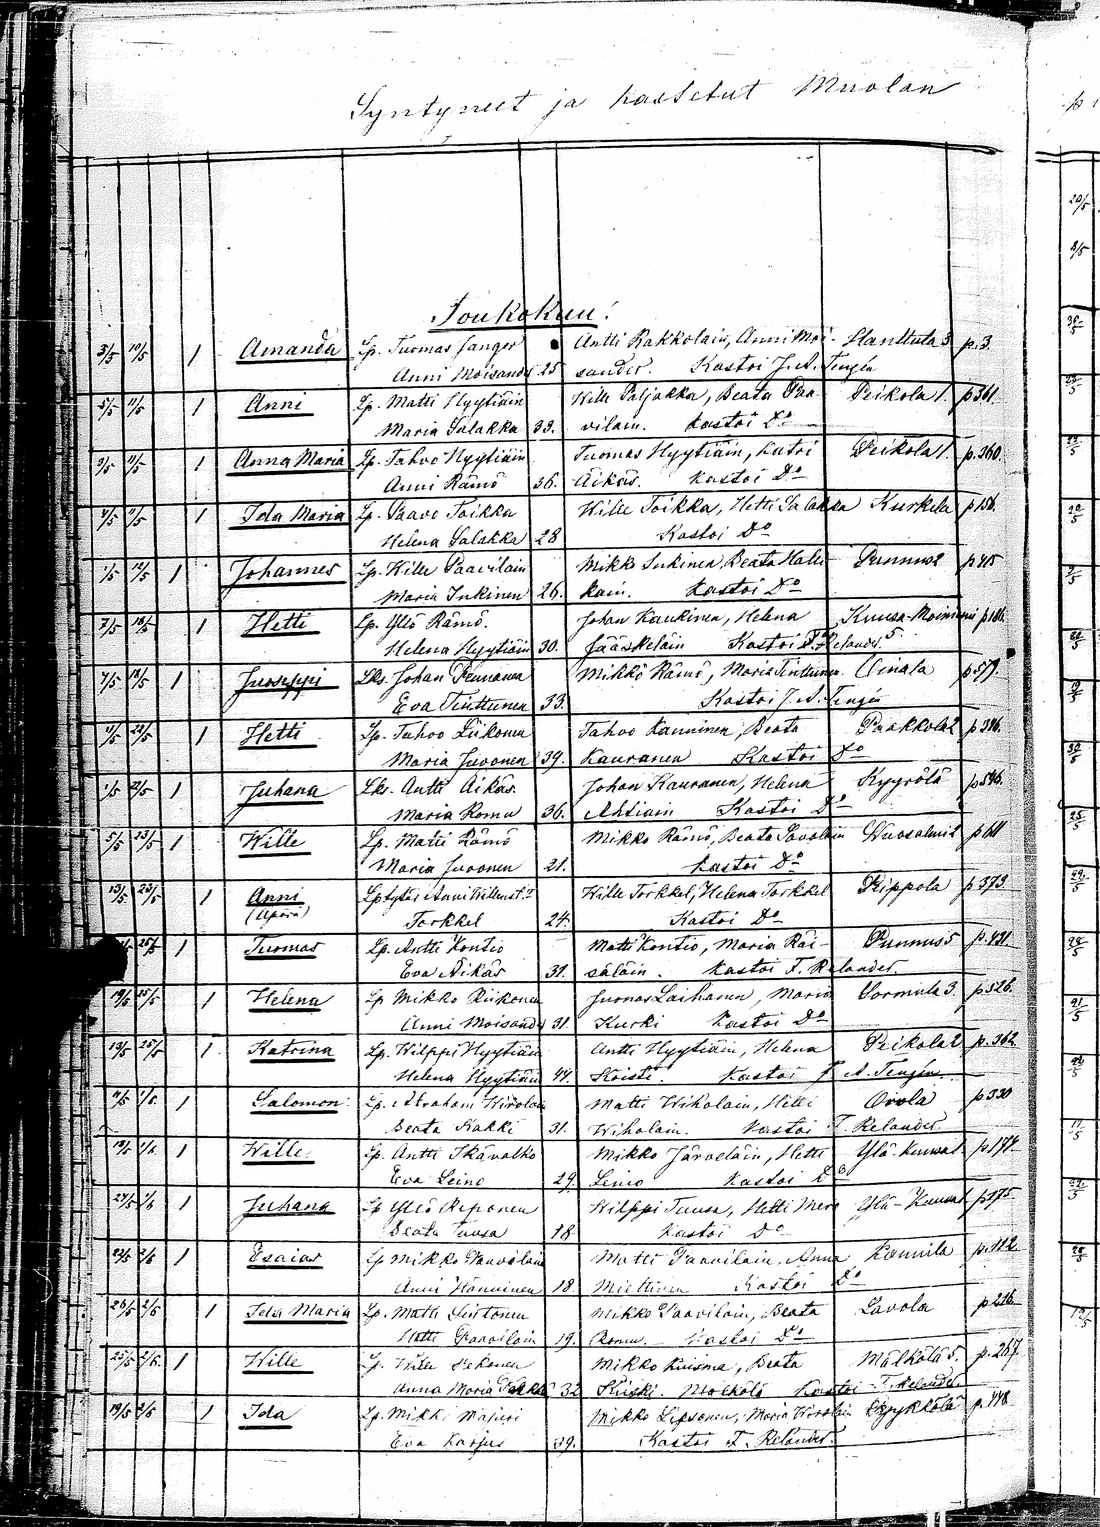 Syntyneet ja kastetut Muolan
Toukokuu.
3/5 10/5 1 Amanda Lp. Tuomas Janger Antti Kakkolain, Anni Moi- Hanttula 3 p. 3.
Anni Moisander 25 sander. Kastoi J. A. Tengén
5/5 11/5 1 Anni Lp. Matti Hyytiäin Wille Paljakka, Beata Paa- Peikola 1. p. 361.
Maria Salakka 33. vilain. Kastoi Do
3/5 11/5 1 Anna Maria Lp. Tahvo Hyytiäin Tuomas Hyytiäin, Peikola 1. p. 360.
Anni Rämö 36. Äikäs. Kastoi Do
4/5 11/5 1 Ida Maria Lp. Paavo Toikka Wille Toikka, Hetti Salakka Kurkela p. 158.
Helena Salakka 28 Kastoi Do
1/5 12/5 1 Johannes Lp. Wille Paavilain Mikko Inkinen, Beata Punnus 2 p. 415
Maria Inkinen 26. Kastoi Do
7/5 18/5 1 Hetti Lp. Yllö Rämö. Johan Kaukinen, Helena p. 186.
Helena Hyytiäin 30. Jääskeläin Kastoi F. Relander.
7/5 18/5 1 Juoseppi Lks. Johan Pennanen Mikko Rämö, Maria Tinttunen. Oinala p. 579.
Eva Tinttunen 33. Kastoi J. A. Tengén
11/5 22/5 1 Hetti Lp. Tahvo Liikonen Tahvo Kanninen, Beata Paakkola 2 p. 346.
Maria Juvonen 39. Kauranen Kastoi Do
1/5 22/5 1 Juhana Lks. Antti Äikäs Johan Kauranen, Helena Kyyrölä p. 546.
Maria Romu 36. Ahtiain Kastoi Do
5/5 23/5 1 Wille Lp. Matti Rämö Mikko Rämö, Beata Savolain p. 611
Maria Juvonen 21. Kastoi Do
13/5 23/5 1 Anni Lp tytär Anni Willenst. Wille Torkkel, Helena Torkkel Pippola p. 373.
(Äpärä) Torkkel 24. Kastoi Do
25/5 1 Tuomas Lp. Antti Kontio Matti Kontio, Maria Räi- Punnus 5 p. 431.
Eva Äikäs 31. säläin. Kastoi F. Relander.
19/5 25/5 1 Helena Lp Mikko Riikonen Juonas Laihanen, Maria Sormula 3. p. 526.
Anni Moisander 31. Kurki Kastoi Do
13/5 25/5 1 Katrina Lp. Wilppi Hyytiäin Antti Hyytiäin, Helena Peikola 2 p. 362.
Helena Hyytiäin 44. Koisti. Kastoi J. A. Tengén.
11/5 1/6 1 Salomon. Lp. Abraham Wirolain Matti Wikolain, Hetti Oiola p. 330
Beata Kakki 31. Wikolain. Kastoi F. Relander.
18/5 1/6 1 Wille. Lp. Antti Ikävalko Mikko Järveläin, Hetti Ylä-Kuusa 1 p. 174.
Eva Leino 29. Leino Kastoi Do
24/5 1/6 1 Juhana Lp Yllö Reponen Wilppi Tuusa, Hetti Mero Ylä-Kuusa 1 p. 175.
Beata Tuusa 18 Kastoi Do
22/5 2/6 1 Esaias Lp Mikko Paavilain Matti Paavilain, Anna Kannila p. 112.
Anni Hänninen 18. Miettinen Kastoi Do
26/5 2/6 1 Ida Maria Lp. Matti Mikko Paavilain, Beata Lavola p. 216.
Hetti Paavilain 19. Romu. Kastoi Do
25/5 2/6 1 Wille Lp. Wille Mikko Kuisma, Beata Mälkölä 5. p. 267.
Anna Maria 32 Kiiski. Mälkölä Kastoi F. Relander
19/5 2/6 1 Ida Lp. Mikki Majuri Mikko Lipsonen, Maria Wirolain p. 448.
Eva Karjus 39. Kastoi F. Relander.